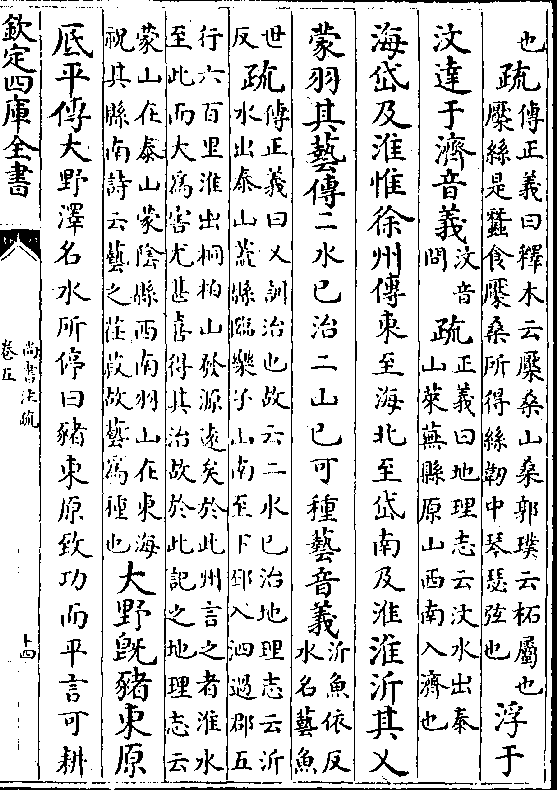 也疏傳正義曰釋木云檿桑山桑郭璞云柘屬也
檿絲是蠶食檿桑所得絲韌中琴瑟弦也浮于
汶達于濟音義汶音問疏正義曰地理志云汶水出泰
山萊蕪縣原山西南入濟也
海岱及淮惟徐州傳東至海北至岱南及淮淮沂其乂
蒙羽其藝傳二水已治二山已可種藝音義沂魚依反
水名藝魚
世反疏傳正義曰乂訓治也故云二水已治地理志云沂
水出泰山蓋縣臨樂子山南至下邳入泗過郡五
行六百里淮出桐柏山發源遠矣於此州言之者淮水
至此而大為害尤甚喜得其治故於此記之地理志云
蒙山在泰山蒙陰縣西南羽山在東海
祝其縣南詩云藝之荏菽故藝為種也大野旣豬東原
厎平傳大野澤名水所停曰豬東原致功而平言可耕
欽定四庫全書
尚書注疏
卷五
十四